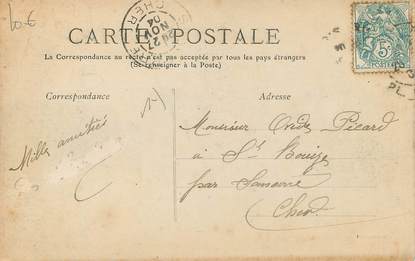 CARTE POSTALE
La Correspondance au recto n'est pas acceptée par tous les pays étrangers
(Se renseigner à la Poste)
Correspondance
Adresse
Mille amitiés
Monsieur Ovide Picard
à St Bouize
par Sancerre
Cher
CHER
27
NOV
04
5c